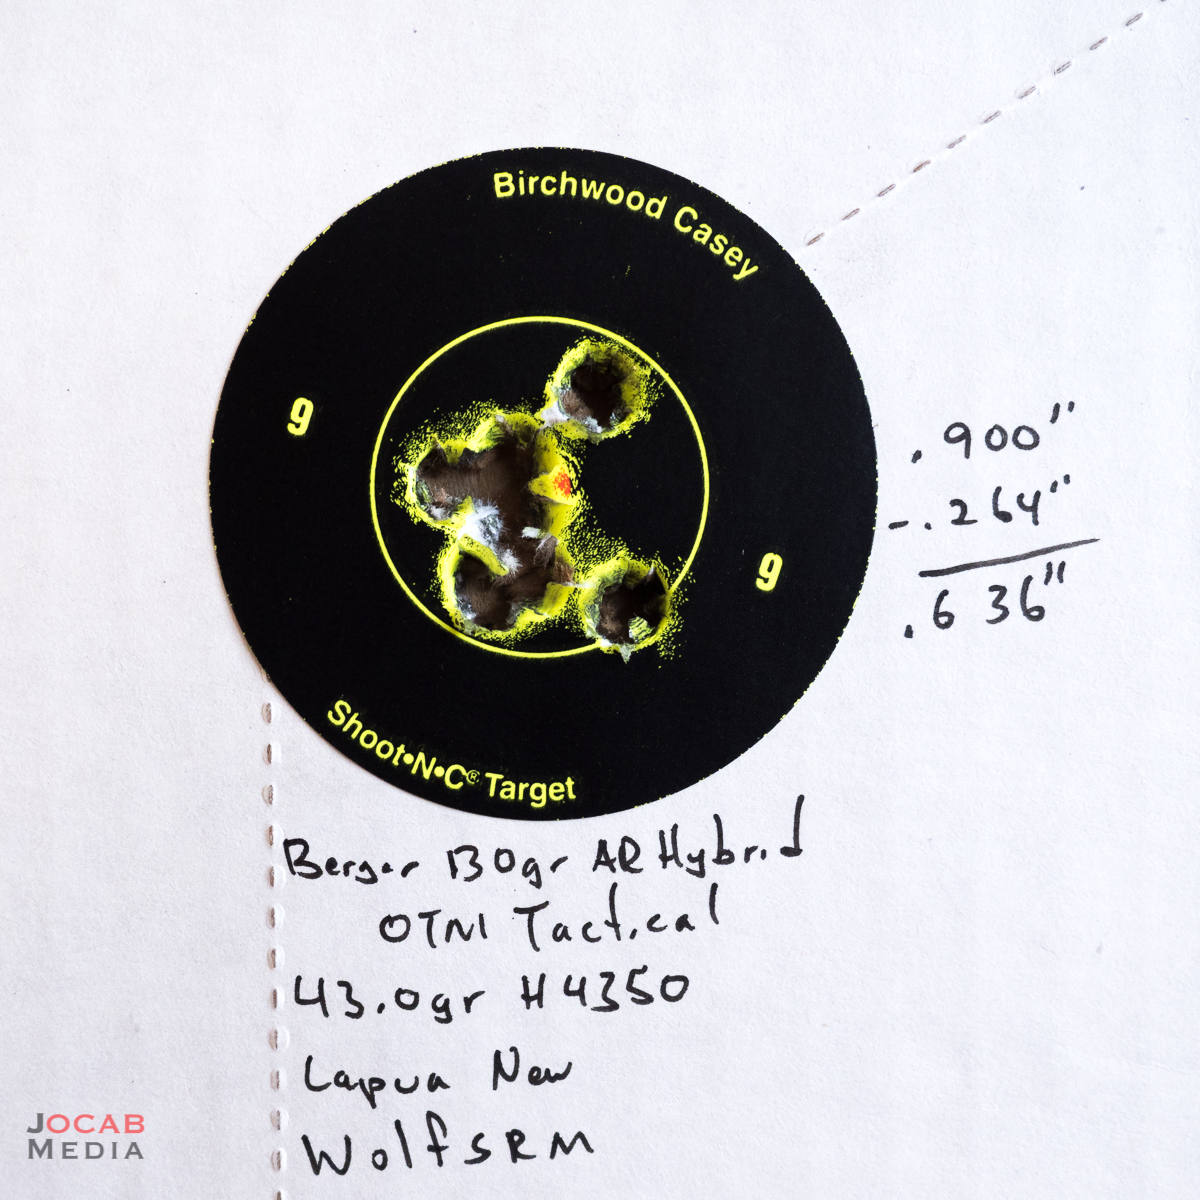 Birchwood Casey
9
9
Shoot•N•C® Target
.900"
-.264"
.636"
Berger 130gr AR Hybrid
OTM Tactical
43.0gr H4350
Lapua New
Wolf SRM
JOCAB
MEDIA